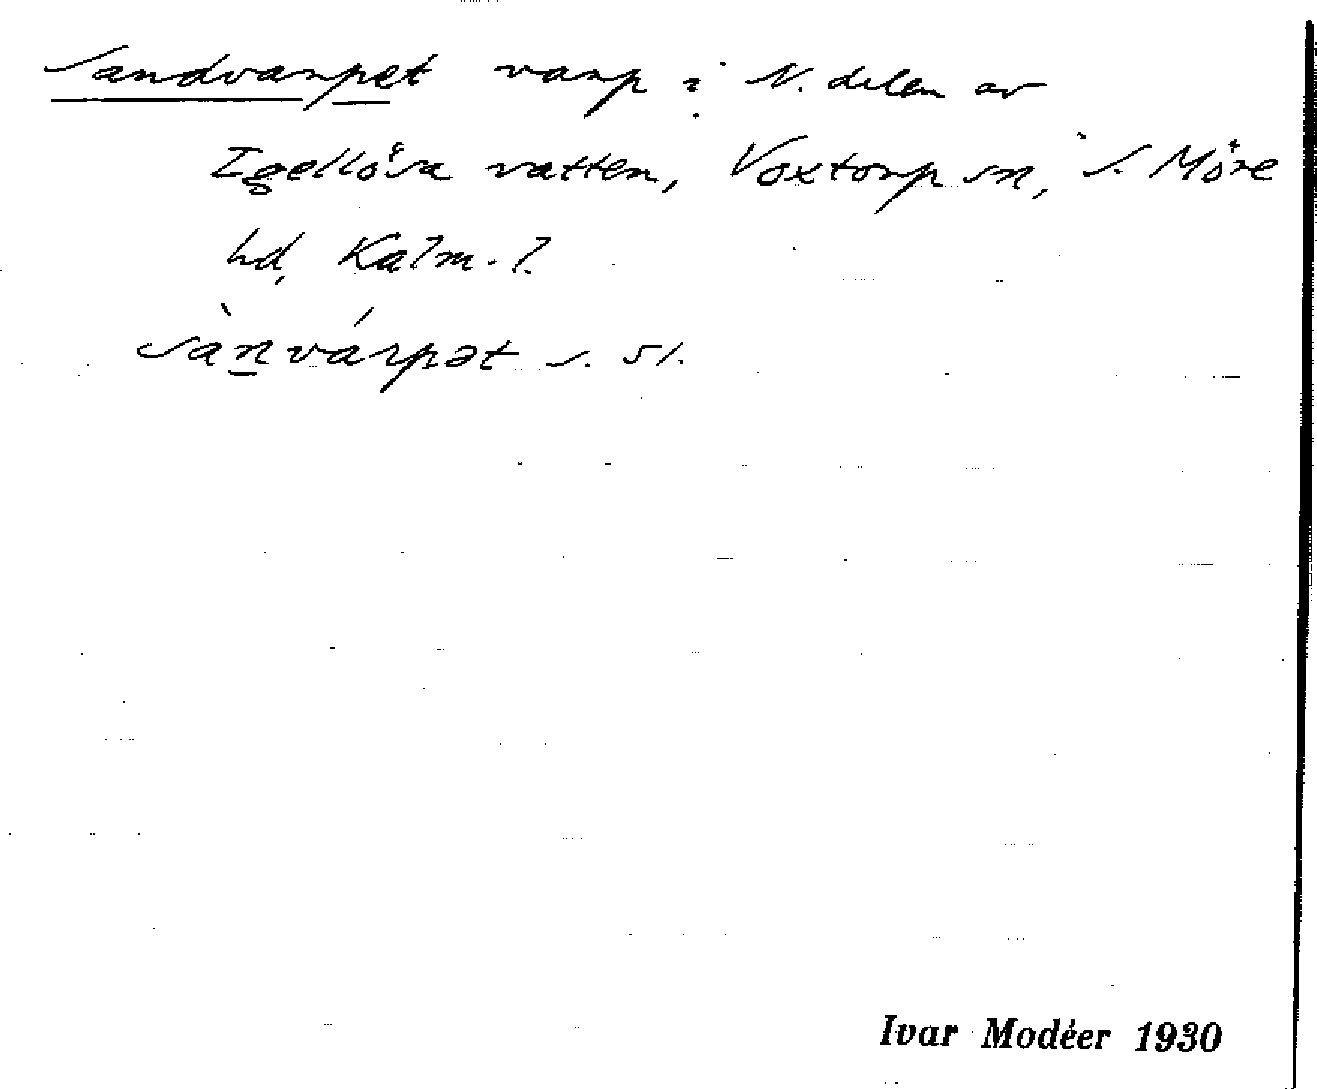 Sandvarpet varp i N. delen av
Igellösa vatten, Voxtorp sn, S. Möre
hd, Kalm. l.
sànvárpət s. 51.
Ivar Modéer 1930